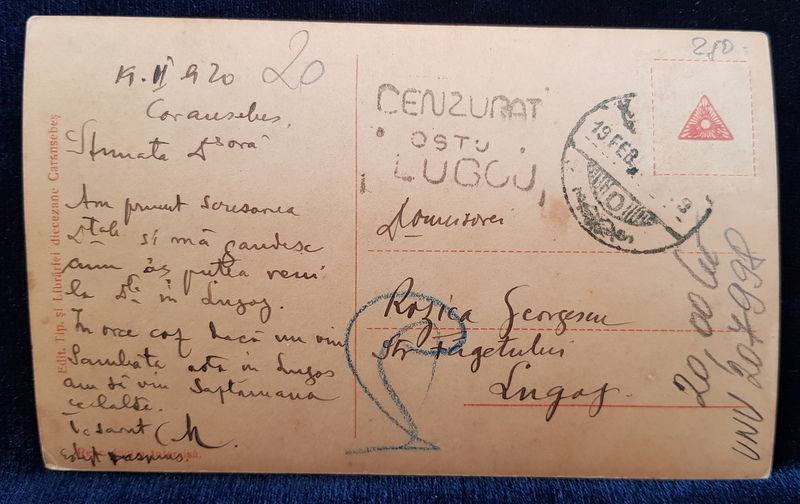 19.II 920
20
Caransebeș.
Stimata Dșoră
Am primit scrisoarea
Dtale și mă gandesc
cum aș putea veni
la Dta în Lugoj.
In orce caz dacă nu vin
Sambăta asta in Lugoj
am să vin Saptămana
cealaltă.
Te sarut M.
Edit. Tip. și Librăriei diecezane Caransebeș
CENZURAT
OSTU
LUGOJ,
19 FEB.
280
Domisorei
Rozica Georgescu
Str Fagetului
Lugoj.
20,00 lei